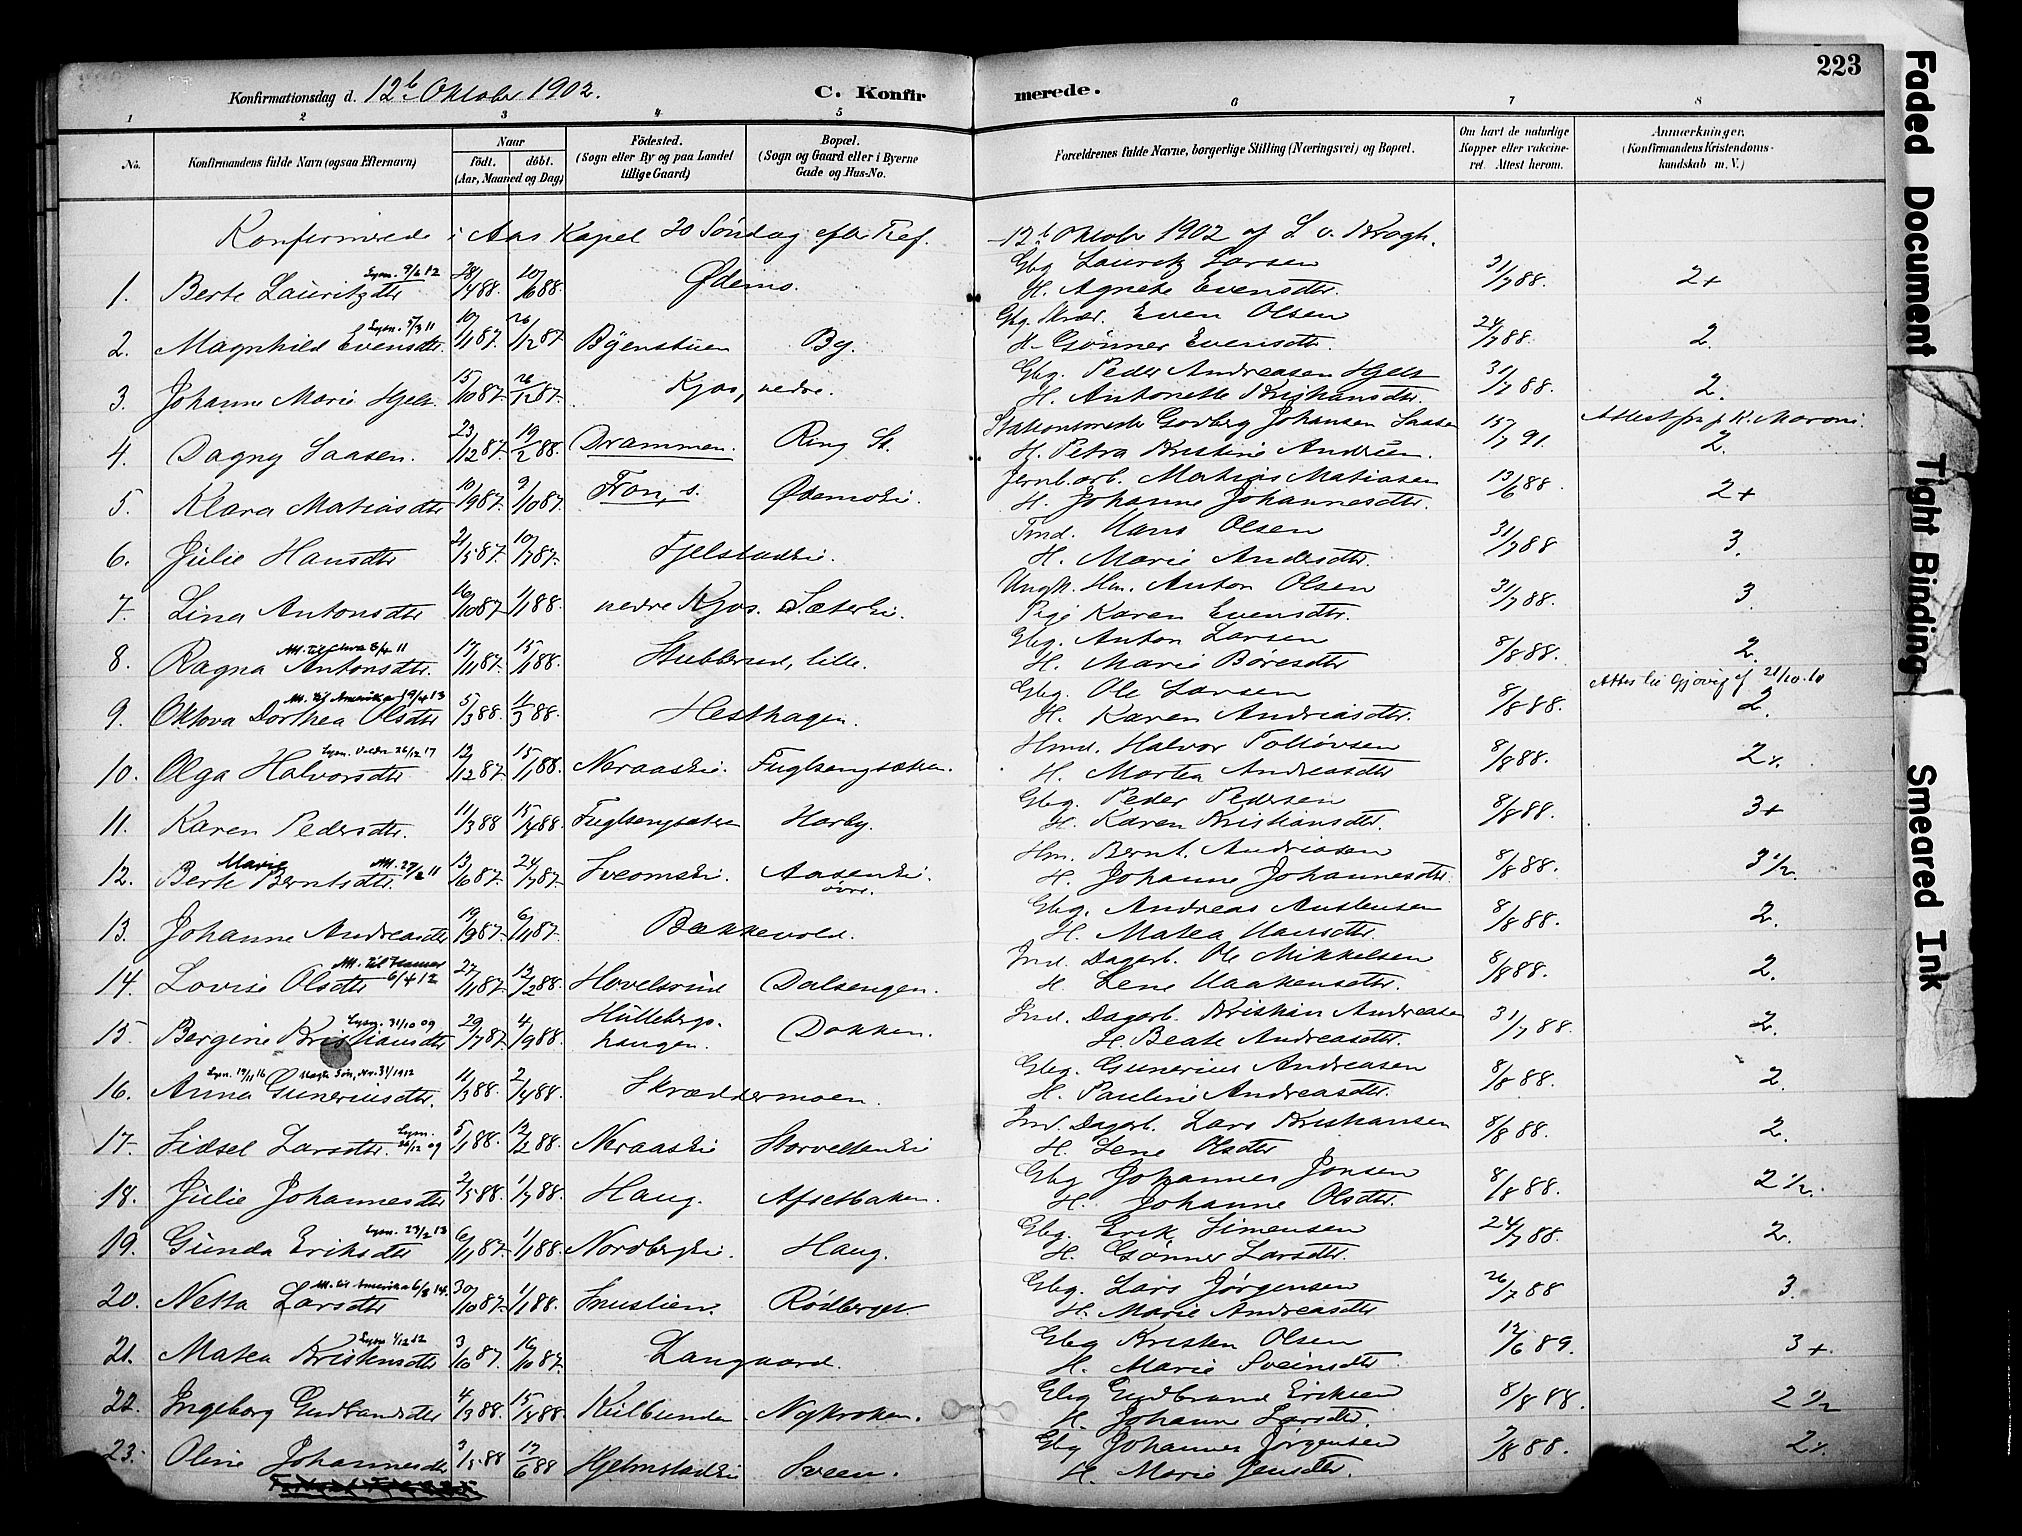 223
Konfirmationsdag d. 12te Oktober 1902. C. Konfirmerede.
1 2 3 4 5 6 7 8
No. Konfirmandens fulde Navn (ogsaa Efternavn) Naar født. døbt. (Aar, Maaned og Dag) Fødested. (Sogn eller By og paa Landet tillige Gaard) Bopæl. (Sogn og Gaard eller i Byerne Gade og Hus-No. Forældrenes fulde Navne, borgerlige Stilling (Næringsvei) og Bopæl. Om havt de naturlige Kopper eller vakcineret. Attest herom. Anmerkninger. (Konfirmandens Kristendomskundskab m. V.)
Konfirmerede i Aas Kapel 20 Søndag efter Tref. 12te Oktober 1902 af L. v. Krogh.
1. Berte Lauritzdtr 28/4 88. 10/6 88. Ødemo. Gbg. Lauritz Larsen H. Agnete Evensdtr. 31/7 88. 2+
2. Magnhild Evensdtr. 10/11 87. 26/12 87. Bÿenstuen By. Gbg. Skræd. Even Olsen H. Gønner Evensdtr. 24/7 88. 2.
3. Johanne Marie Hjelt. 15/10 87. 26/12 87. Kjos, nedre. Gbg. Peder Andreasen Hjelt H. Antonette Kristiansdtr. 31/7 88. 2.
4. Dagny Saasen. 23/12 87. 19/2 88. Drammen. Ring St. Stationsmester Godberg Johansen Saasen H. Petra Kristine Andrèen. 15/7 91. 2.
5. Klara Matiasdtr 10/9 87. 9/10 87. Fron, s. Ødemoei. Jernb.arb. Matias Matiasen H. Johanne Johannesdtr. 13/6 88. 2+
6. Julie Hansdtr 21/5 87. 10/7 87. Fjelstadei. Hans Olsen H. Marie Andersdtr. 31/7 88 3.
7. Lina Antonsdtr 16/10 87. 1/1 88. nedre Kjos. Sæterei. Ungk. Hm. Anton Olsen Pige Karen Evensdtr. 31/7 88. 3.
8. Ragna Antonsdtr. 17/11 87. 15/1 88. Stubberud, lille. Gbg. Anton Larsen H. Marie Børesdtr 8/8 88. 2.
9. Oktova Dorthea Olsdtr Att. til Amerika 19/4 13 5/3 88. 11/3 88. Hesthagen. Gbg. Ole Larsen H. Karen Andreasdtr. 8/8 88. Attest til Gjøvig 21/10.10 2.
10. Olga Halvorsdtr 12/12 87. 15/1 88. Neraasei. Fuglsengsæteren. Hmd. Halvor Tolløvsen H. Martea Andreasdtr 8/8 88.
11. Karen Pedersdtr. 11/3 88 15/4 88. Fuglsengsæteren Horby. Gbg. Peder Pedersen H. Karen Kristiansdtr. 8/8 88. 3+
12. Berte Marie Berntsdtr. Att. 27/2 11 13/6 87. 24/7 87. Sveomei. Aasenei. øvre. Hm. Bernt Andreasen H. Johanne Johannesdtr. 8/8 88. 3 1/2.
13. Johanne Andreasdtr 19/9 87. 6/11 87. Bækkevold. Gbg. Andreas Austensen H. Matea Hansdtr. 8/8 88. 2.
14. Lovise Olsdtr 6/4 12 27/11 87. 12/2 88. Hovelsrud Dalsengen. Ind. Dagarb. Ole Mikkelsen H. Lene Haakensdtr. 8/8 88. 2.
15. Bergine Kristiansdtr 31/10 09 29/7 87. 4/9 88. Hullebergshaugen. Dokken. Ind. Dagarb. Kristian Andreasen H. Beate Andreasdtr. 31/7 88. 2.
16. Anna Guneriusdtr. 11/3 88. 2/4 88. Skræddermoen. Gbg. Gunerius Andreasen H. Pauline Andreasdtr. 8/8 88. 2.
17. Sidsel Larsdtr. 5/1 88. 12/2 88. Neraasei Storveltenei Ind. Dagarb. Lars Kristiansen H. Lene Olsdtr 8/8 88. 2.
18. Julie Johannesdtr 2/5 88. 1/7 88. Haug. Afsetbaken. Gbg Johannes Jonsen H. Johanne Olsdtr. 8/8 88. 2 1/2.
19. Gunda Eriksdtr 23/2 13 6/11 87. 1/1 88. Nordbergei. Haug. Gbg. Erik Simensen H. Gønner Larsdtr. 24/7 88. 2.
20. Netta Larsdtr Att. til Amerika 6/3 14. 30/10 87. 1/1 88. Snuslien. Rødberget. Gbg. Lars Jørgensen H. Marie Andreasdtr 26/7 88 3.
21. Matea Kristensdtr 1/12 12 3/10 87. 16/10 87. Langaard. Gbg Kristen Olsen H. Marie Sveinsdtr 12/6 89. 3+.
22. Ingeborg Gudbrandsdtr 4/3 88. 15/4 88. Kulbunden Nykroken. Gbg Gudbrand Eriksen H. Johanne Larsdtr. 8/8 88. 2 1/2
23. Oline Johannesdtr 3/5 88 17/6 88 Hjelmstadei Sveen. Gbg Johannes Jørgensen H. Marie Jensdtr. 7/8 88.
Faded Document
Tight Binding
Smeared Ink